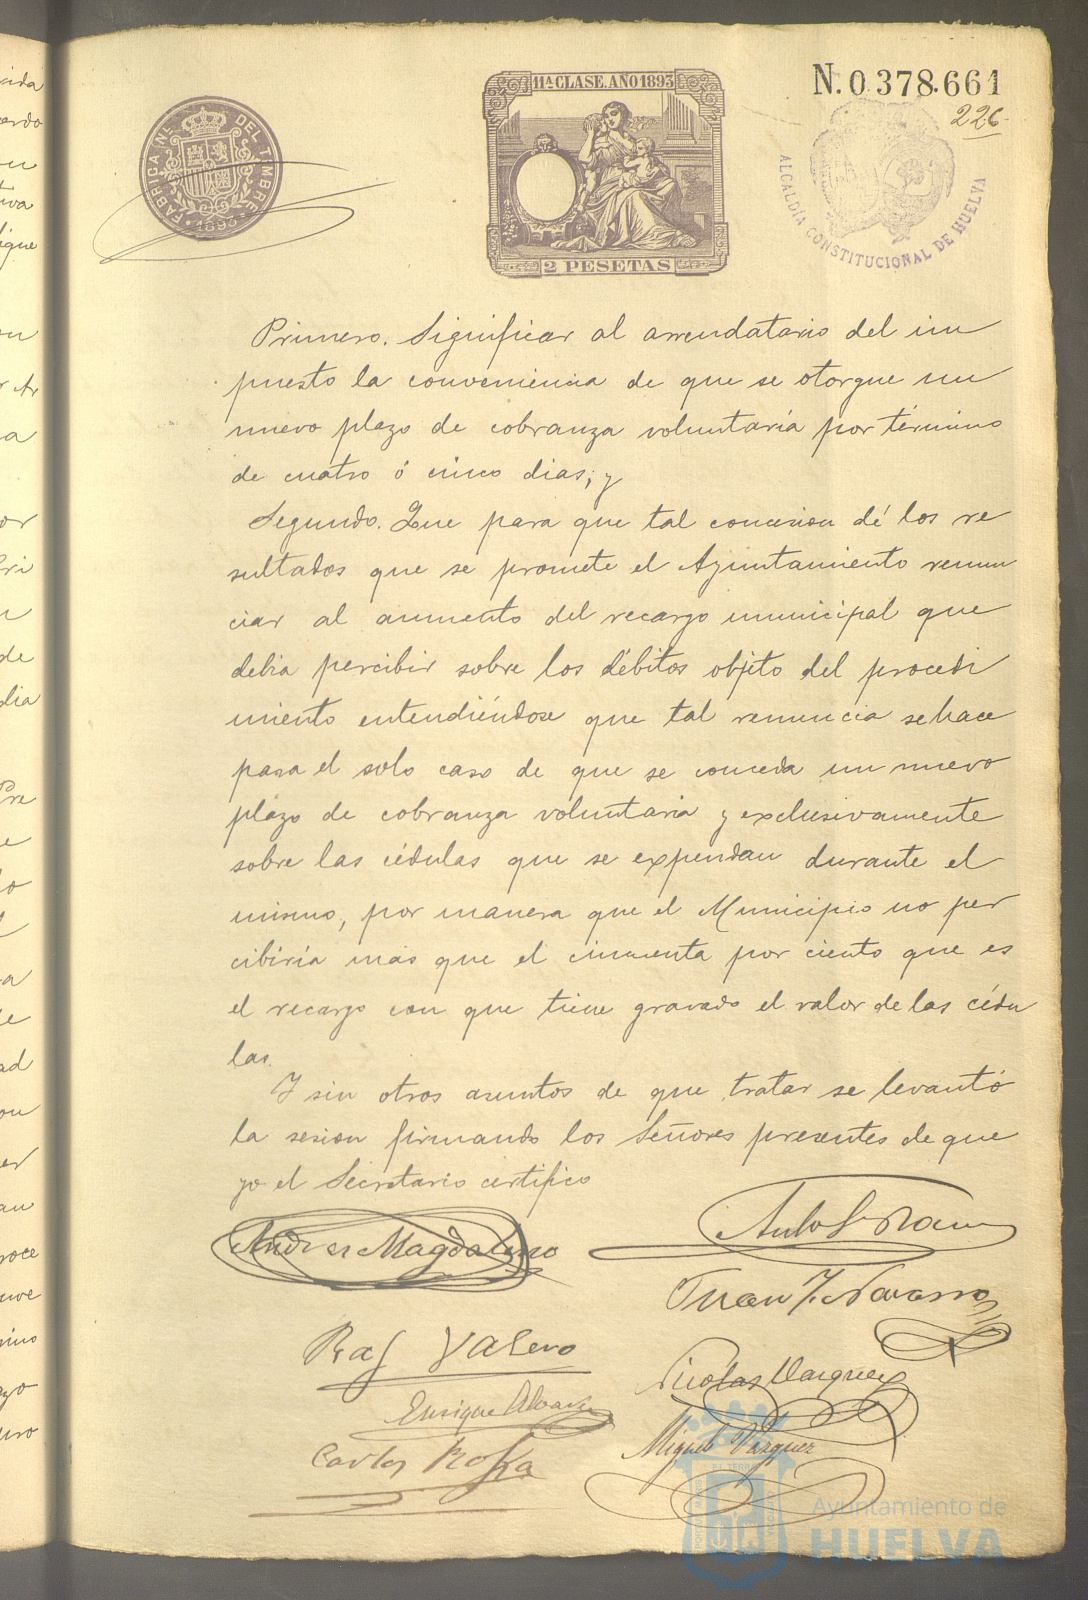 11ª CLASE. AÑO 1893
N. 0.378.661
226
FÁBRICA NL. DEL TIMBRE
1893
2 PESETAS
ALCALDÍA CONSTITUCIONAL DE HUELVA
Primero. Significar al arrendatario del im
puesto la conveniencia de que se otorgue un
nuevo plazo de cobranza voluntaría por término
de cuatro ó cinco dias; y
Segundo. Que para que tal concesion dé los re
sultados que se promete el Ayuntamiento renun
ciar al aumento del recargo municipal que
debia percibir sobre los débitos objeto del procedi
miento entendiéndose que tal renuncia se hace
para el solo caso de que se conceda un nuevo
plazo de cobranza voluntaria y exclusivamente
sobre las cédulas que se expendan durante el
mismo, por manera que el Municipio no per
cibiría más que el cincuenta por ciento que es
el recargo con que tiene gravado el valor de las cédu
las.
Y sin otros asuntos de que tratar se levantó
la sesion firmando los Señores presentes de que
yo el Secretario certifico
Andres Magdaleno
Juan J. Navarro
Raf Valero
Nicolas Vazquez
Enrique Alvarez
Miguel Vázquez
Carlos
Ayuntamiento de
HUELVA